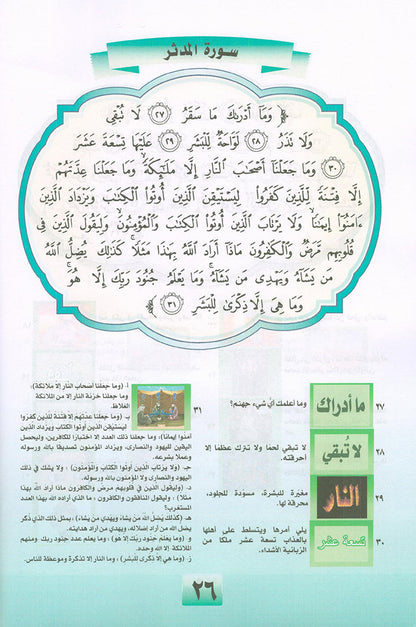 سورة المدثر
﴿ وَمَا أَدْرَىٰكَ مَا سَقَرُ ٢٧ لَا تُبْقِي
وَلَا تَذَرُ ٢٨ لَوَّاحَةٌ لِّلْبَشَرِ ٢٩ عَلَيْهَا تِسْعَةَ عَشَرَ
٣٠ وَمَا جَعَلْنَا أَصْحَٰبَ النَّارِ إِلَّا مَلَٰٓئِكَةً وَمَا جَعَلْنَا عِدَّتَهُمْ
إِلَّا فِتْنَةً لِّلَّذِينَ كَفَرُوا لِيَسْتَيْقِنَ الَّذِينَ أُوتُوا الْكِتَٰبَ وَيَزْدَادَ الَّذِينَ
ءَامَنُوٓا إِيمَٰنًا وَلَا يَرْتَابَ الَّذِينَ أُوتُوا الْكِتَٰبَ وَالْمُؤْمِنُونَ وَلِيَقُولَ الَّذِينَ فِي
قُلُوبِهِم مَّرَضٌ وَالْكَٰفِرُونَ مَاذَآ أَرَادَ اللَّهُ بِهَٰذَا مَثَلًا كَذَٰلِكَ يُضِلُّ اللَّهُ
مَن يَشَآءُ وَيَهْدِي مَن يَشَآءُ وَمَا يَعْلَمُ جُنُودَ رَبِّكَ إِلَّا هُوَ
وَمَا هِيَ إِلَّا ذِكْرَىٰ لِلْبَشَرِ ٣١ ﴾
٢٧
ما أدراك
وما أعلمك أي شيء جهنم؟
٢٨
لا تُبقي
لا تبقي لحمًا ولا تترك عظمًا إلا
أحرقته.
٢٩
النار
مغيّرة للبشرة، مسوّدة للجلود،
محرقة لها.
٣٠
تسعة عشر
يلي أمرها ويتسلط على أهلها
بالعذاب تسعة عشر ملكًا من
الزبانية الأشداء.
٣١
أ - (وما جعلنا أصحاب النار إلا ملائكة):
وما جعلنا خزنة النار إلا من الملائكة
الغلاظ.
ب - (وما جعلنا عدتهم إلا فتنة للذين كفروا
ليستيقن الذين أوتوا الكتاب ويزداد الذين
آمنوا إيمانا): وما جعلنا ذلك العدد إلا اختبارًا للكافرين، وليحصل
اليقين لليهود والنصارى، ويزداد المؤمنون تصديقًا بالله ورسوله
وعملًا بشرعه.
جـ - (ولا يرتاب الذين أوتوا الكتاب والمؤمنون): ولا يشك في ذلك
اليهود والنصارى ولا المؤمنون بالله ورسوله.
د - (وليقول الذين في قلوبهم مرض والكافرون ماذا أراد الله بهذا
مثلا): وليقول المنافقون والكافرون: ما الذي أراده الله بهذا العدد
المستغرب؟
هـ - (كذلك يضل الله من يشاء ويهدي من يشاء): بمثل ذلك الذي ذكر
يضل الله من أراد إضلاله، ويهدي من أراد هدايته.
و - (وما يعلم جنود ربك إلا هو): وما يعلم عدد جنود ربك -ومنهم
الملائكة- إلا الله وحده.
ز - (وما هي إلا ذكرى للبشر): وما النار إلا تذكرة وموعظة للناس.
٢٦